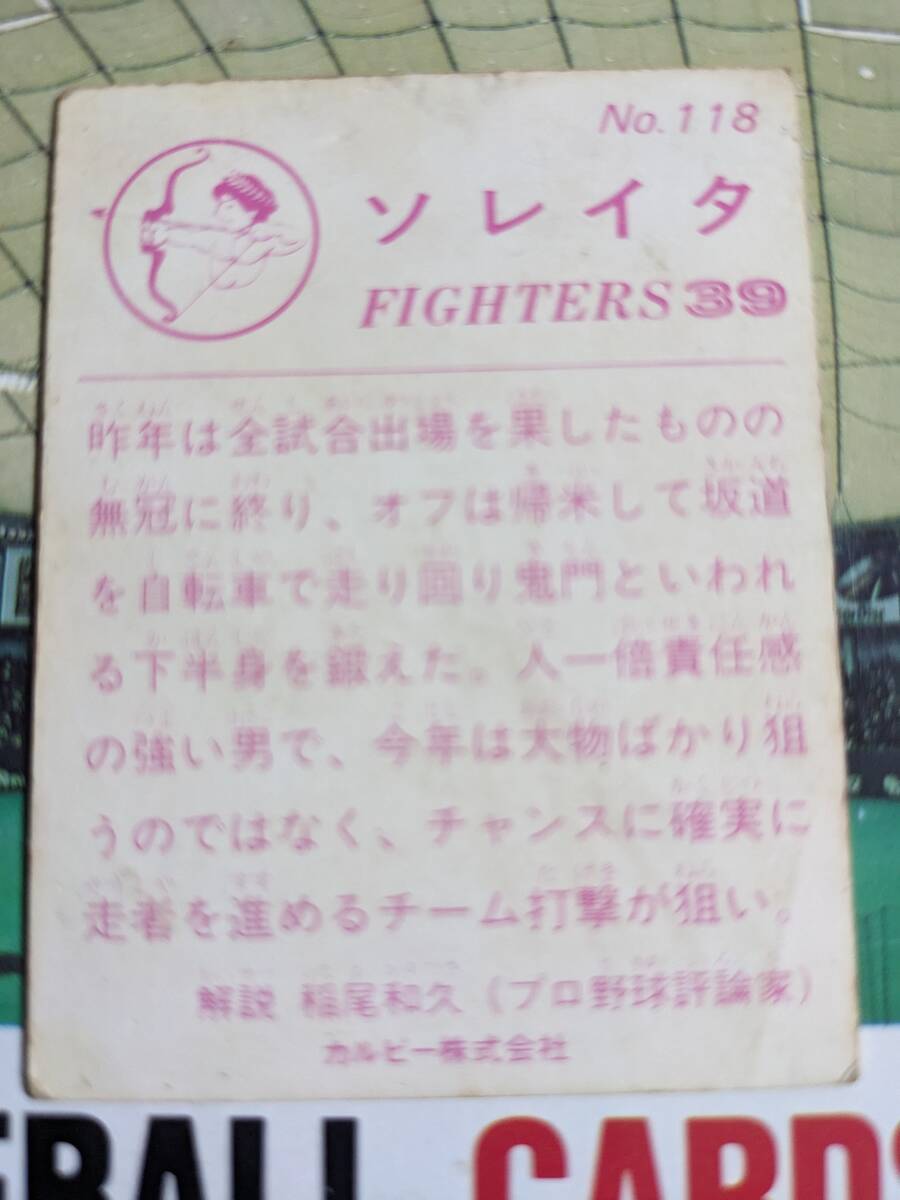 No.118
ソレイタ
FIGHTERS 39
昨年は全試合出場を果したものの
無冠に終り、オフは帰米して坂道
を自転車で走り回り鬼門といわれ
る下半身を鍛えた。人一倍責任感
の強い男で、今年は大物ばかり狙
うのではなく、チャンスに確実に
走者を進めるチーム打撃が狙い。
解説 稲尾和久(プロ野球評論家)
カルビー株式会社
BALL CARDS